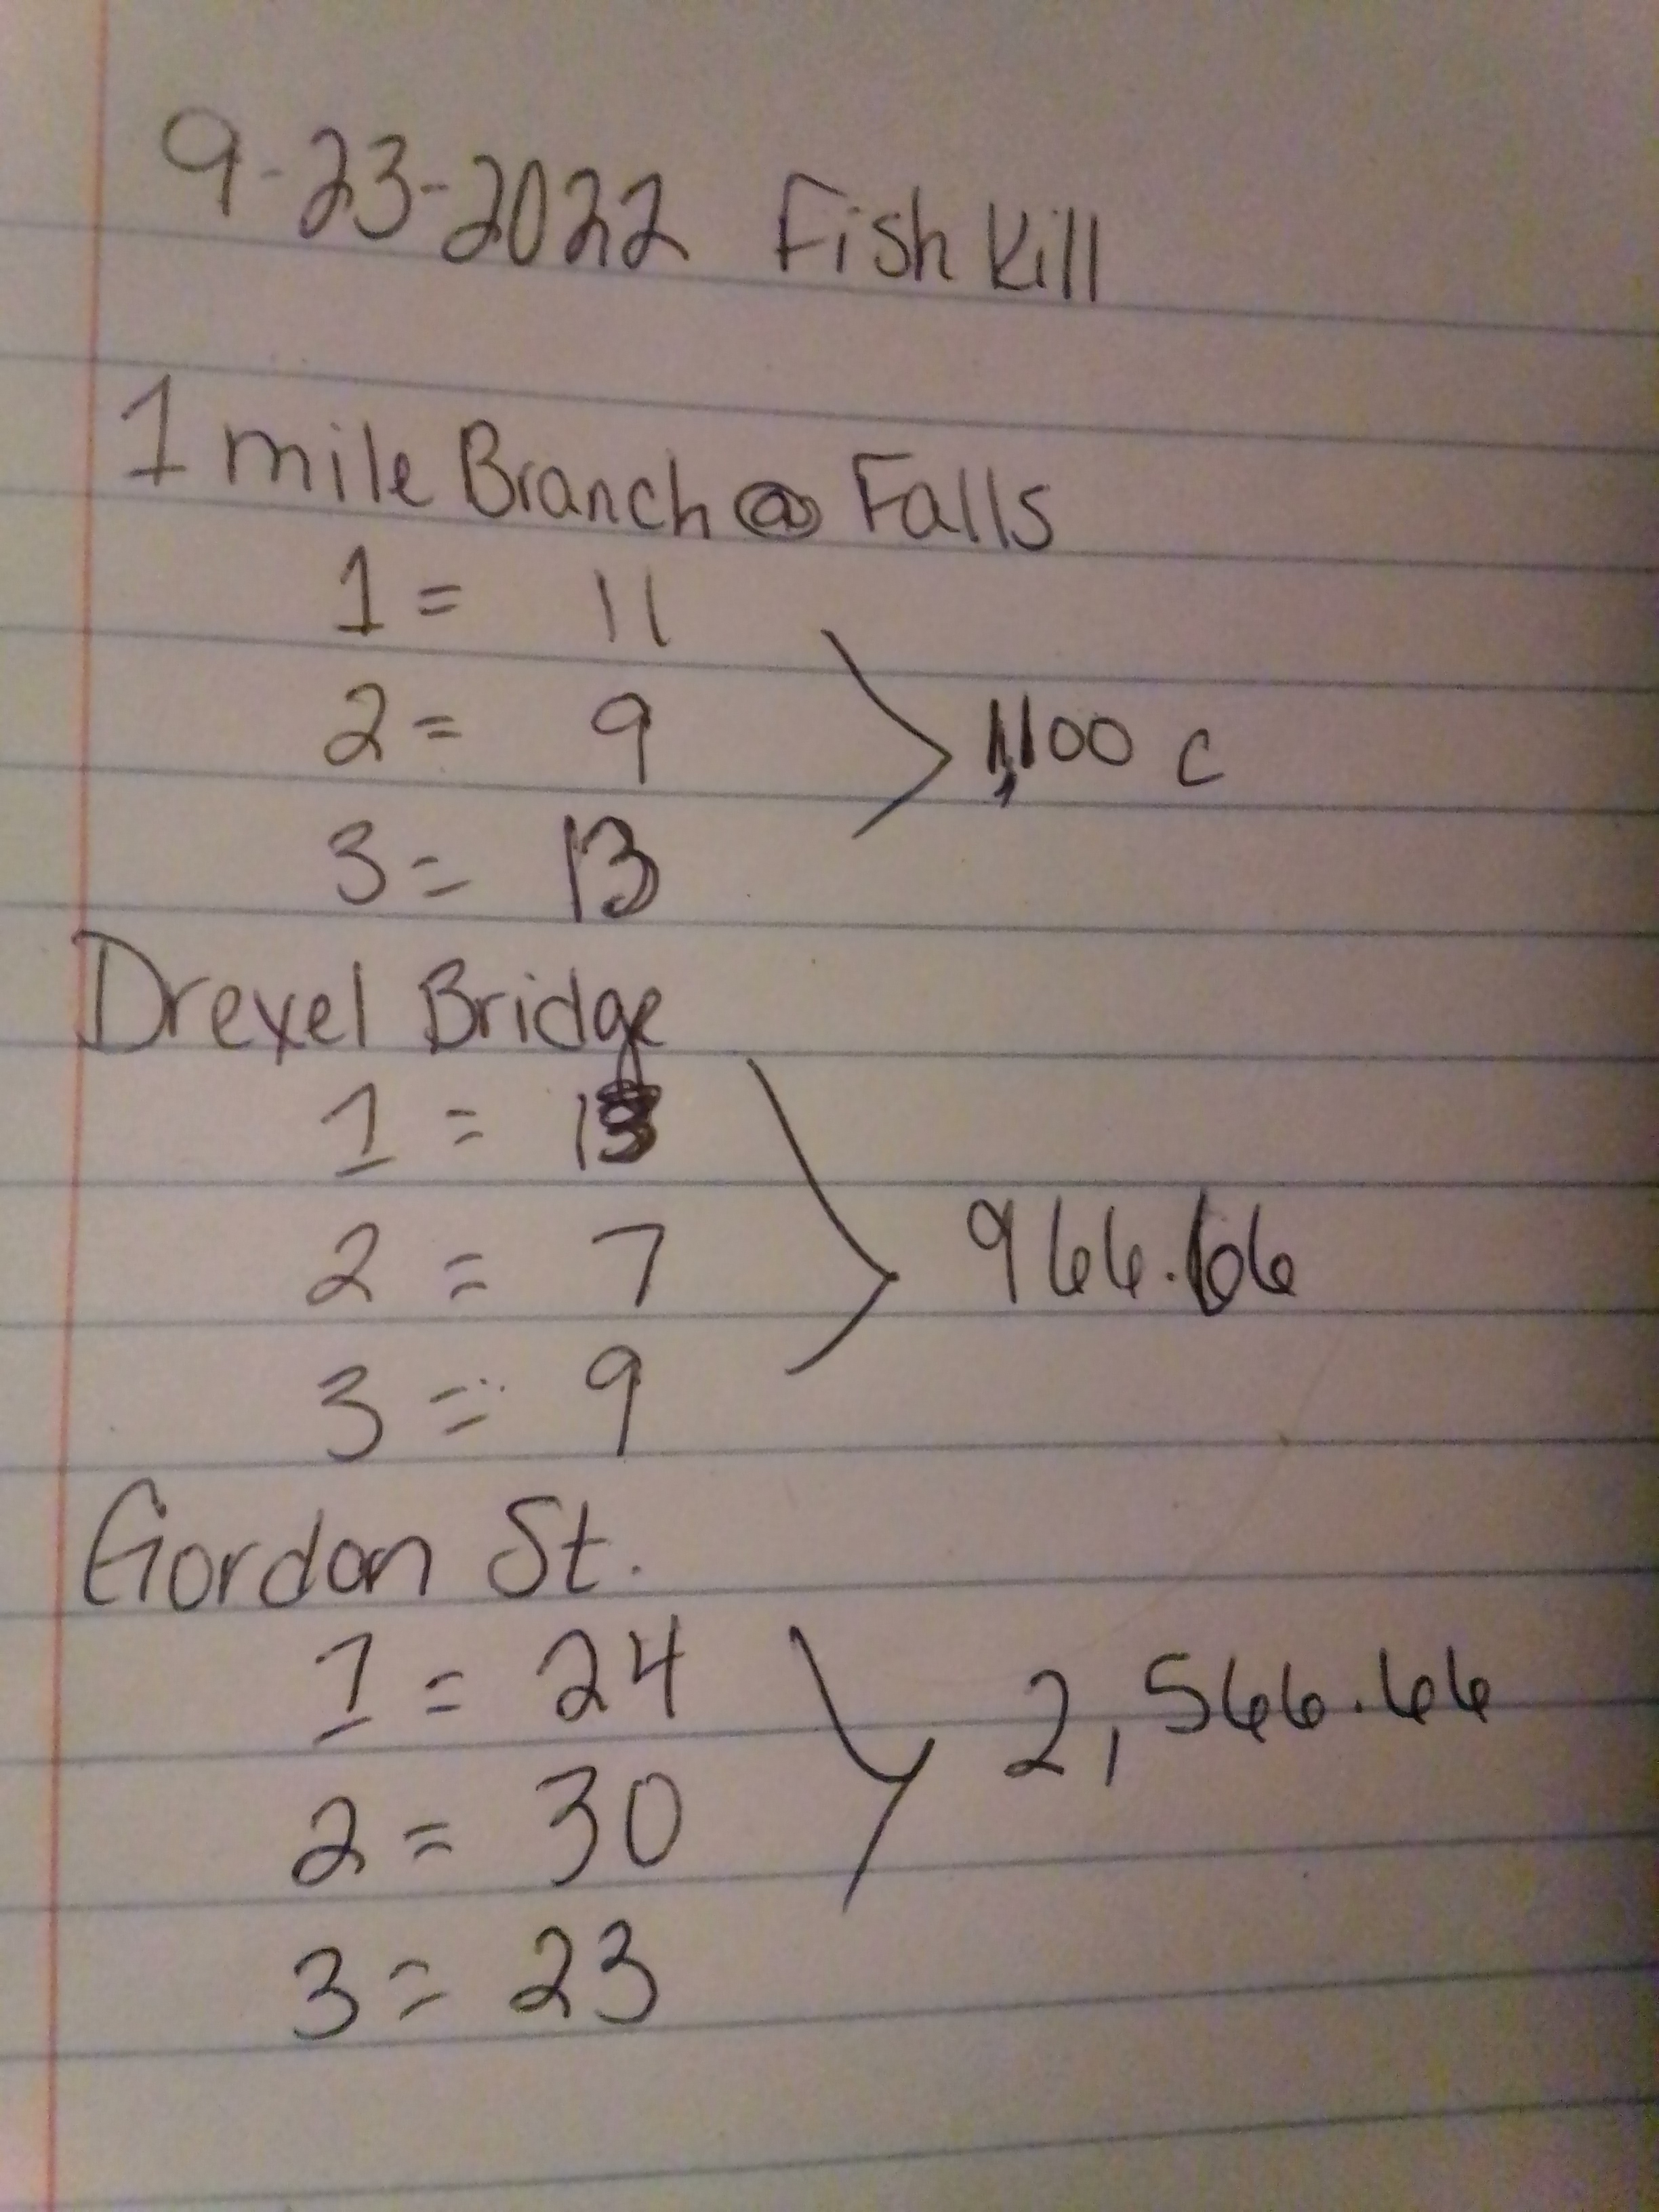 9-23-2022 Fish Kill
1 mile Branch @ Falls
1 = 11
2 = 9
1,100 c
3 = 13
Drexel Bridge
1 = 13
2 = 7
966.66
3 = 9
Gordon St.
1 = 24
2,566.66
2 = 30
3 = 23